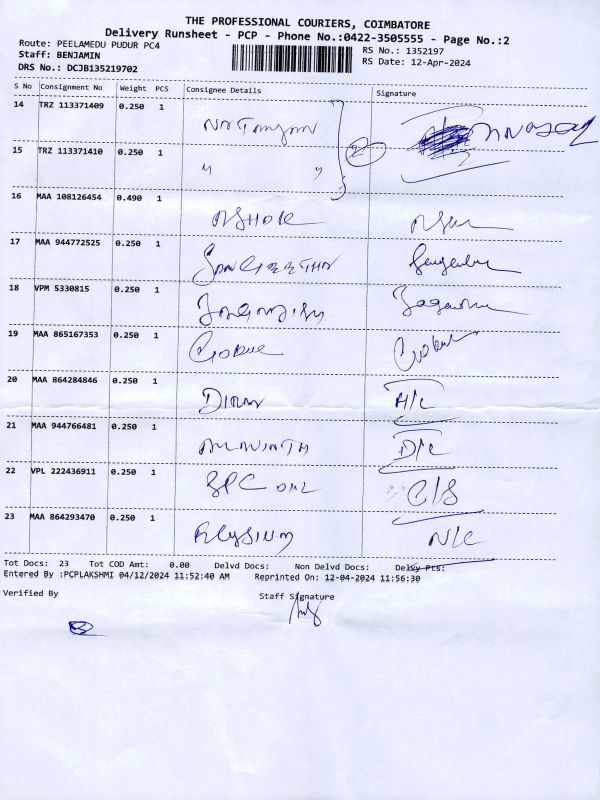 THE PROFESSIONAL COURIERS, COIMBATORE
Delivery Runsheet - PCP - Phone No.:0422-3505555 - Page No.:2
Route: PEELAMEDU PUDUR PC4
RS No.: 1352197
Staff: BENJAMIN
RS Date: 12-Apr-2024
DRS No.: DCJB135219702
S No Consignment No Weight PCS Consignee Details Signature
14 TRZ 113371409 0.250 1
2
15 TRZ 113371410 0.250 1 " "
16 MAA 108126454 0.490 1
17 MAA 944772525 0.250 1
18 VPM 5330815 0.250 1
19 MAA 865167353 0.250 1 Gokul Gokul
20 MAA 864284846 0.250 1 A/C
21 MAA 944766481 0.250 1 D/C
22 VPL 222436911 0.250 1 C/S
23 MAA 864293470 0.250 1 Elysium N/C
Tot Docs: 23 Tot COD Amt: 0.00 Delvd Docs: Non Delvd Docs: Delvy Pts:
Entered By :PCPLAKSHMI 04/12/2024 11:52:40 AM Reprinted On: 12-04-2024 11:56:30
Verified By Staff Signature